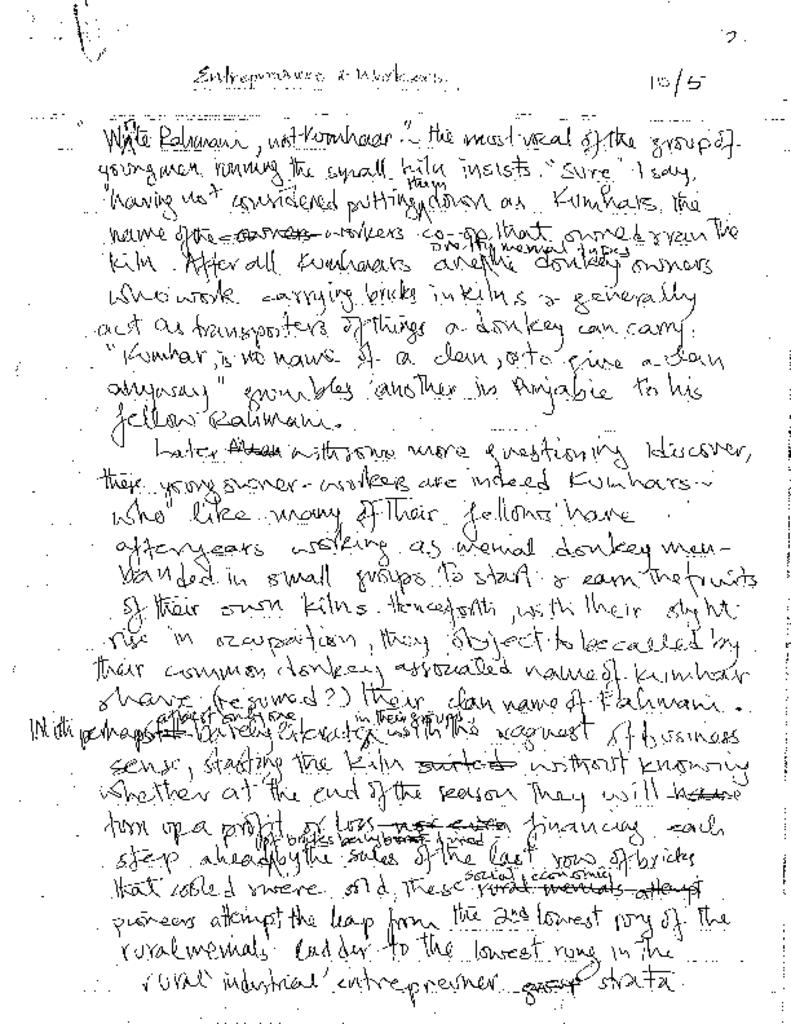 2.
Entrepreneurs & Workers
10/5
"Write Rahmani, not Kumhaar." the most vocal of the group of
young men running the small kiln insists. "Sure" I say,
"having not considered putting them down as Kumhars, the
name of the owners workers co-op that owned & ran the
kiln. After all Kumhaars are the menial donkey owners
who work carrying bricks in kilns & generally
act as transporters of things a donkey can carry.
"Kumhar, is no name of a clan, or to give a clan
anyway" grumbles another in Punjabie to his
fellow Rahmani.
Later with some more questioning I discover,
these young owner-workers are indeed Kumhars -
who like many of their fellows have
after years working as menial donkey men -
banded in small groups to start & earn the fruits
of their own kilns. Henceforth, with their slight
rise in occupation, they object to be called by
their common donkey associated name of Kumhar
& have (resumed?) their clan name of Rahmani.
With perhaps at best only one barely literate in their group, with the vaguest of business
sense, starting the kiln without knowing
whether at the end of the season they will
turn up a profit or loss not even financing each
step ahead by the sales of the last row of bricks
that cooled & were sold, these social, economic rural menials attempt
pioneers attempt the leap from the 2nd lowest rung of the
rural menials ladder to the lowest rung in the
rural 'industrial' entrepreuner group strata.